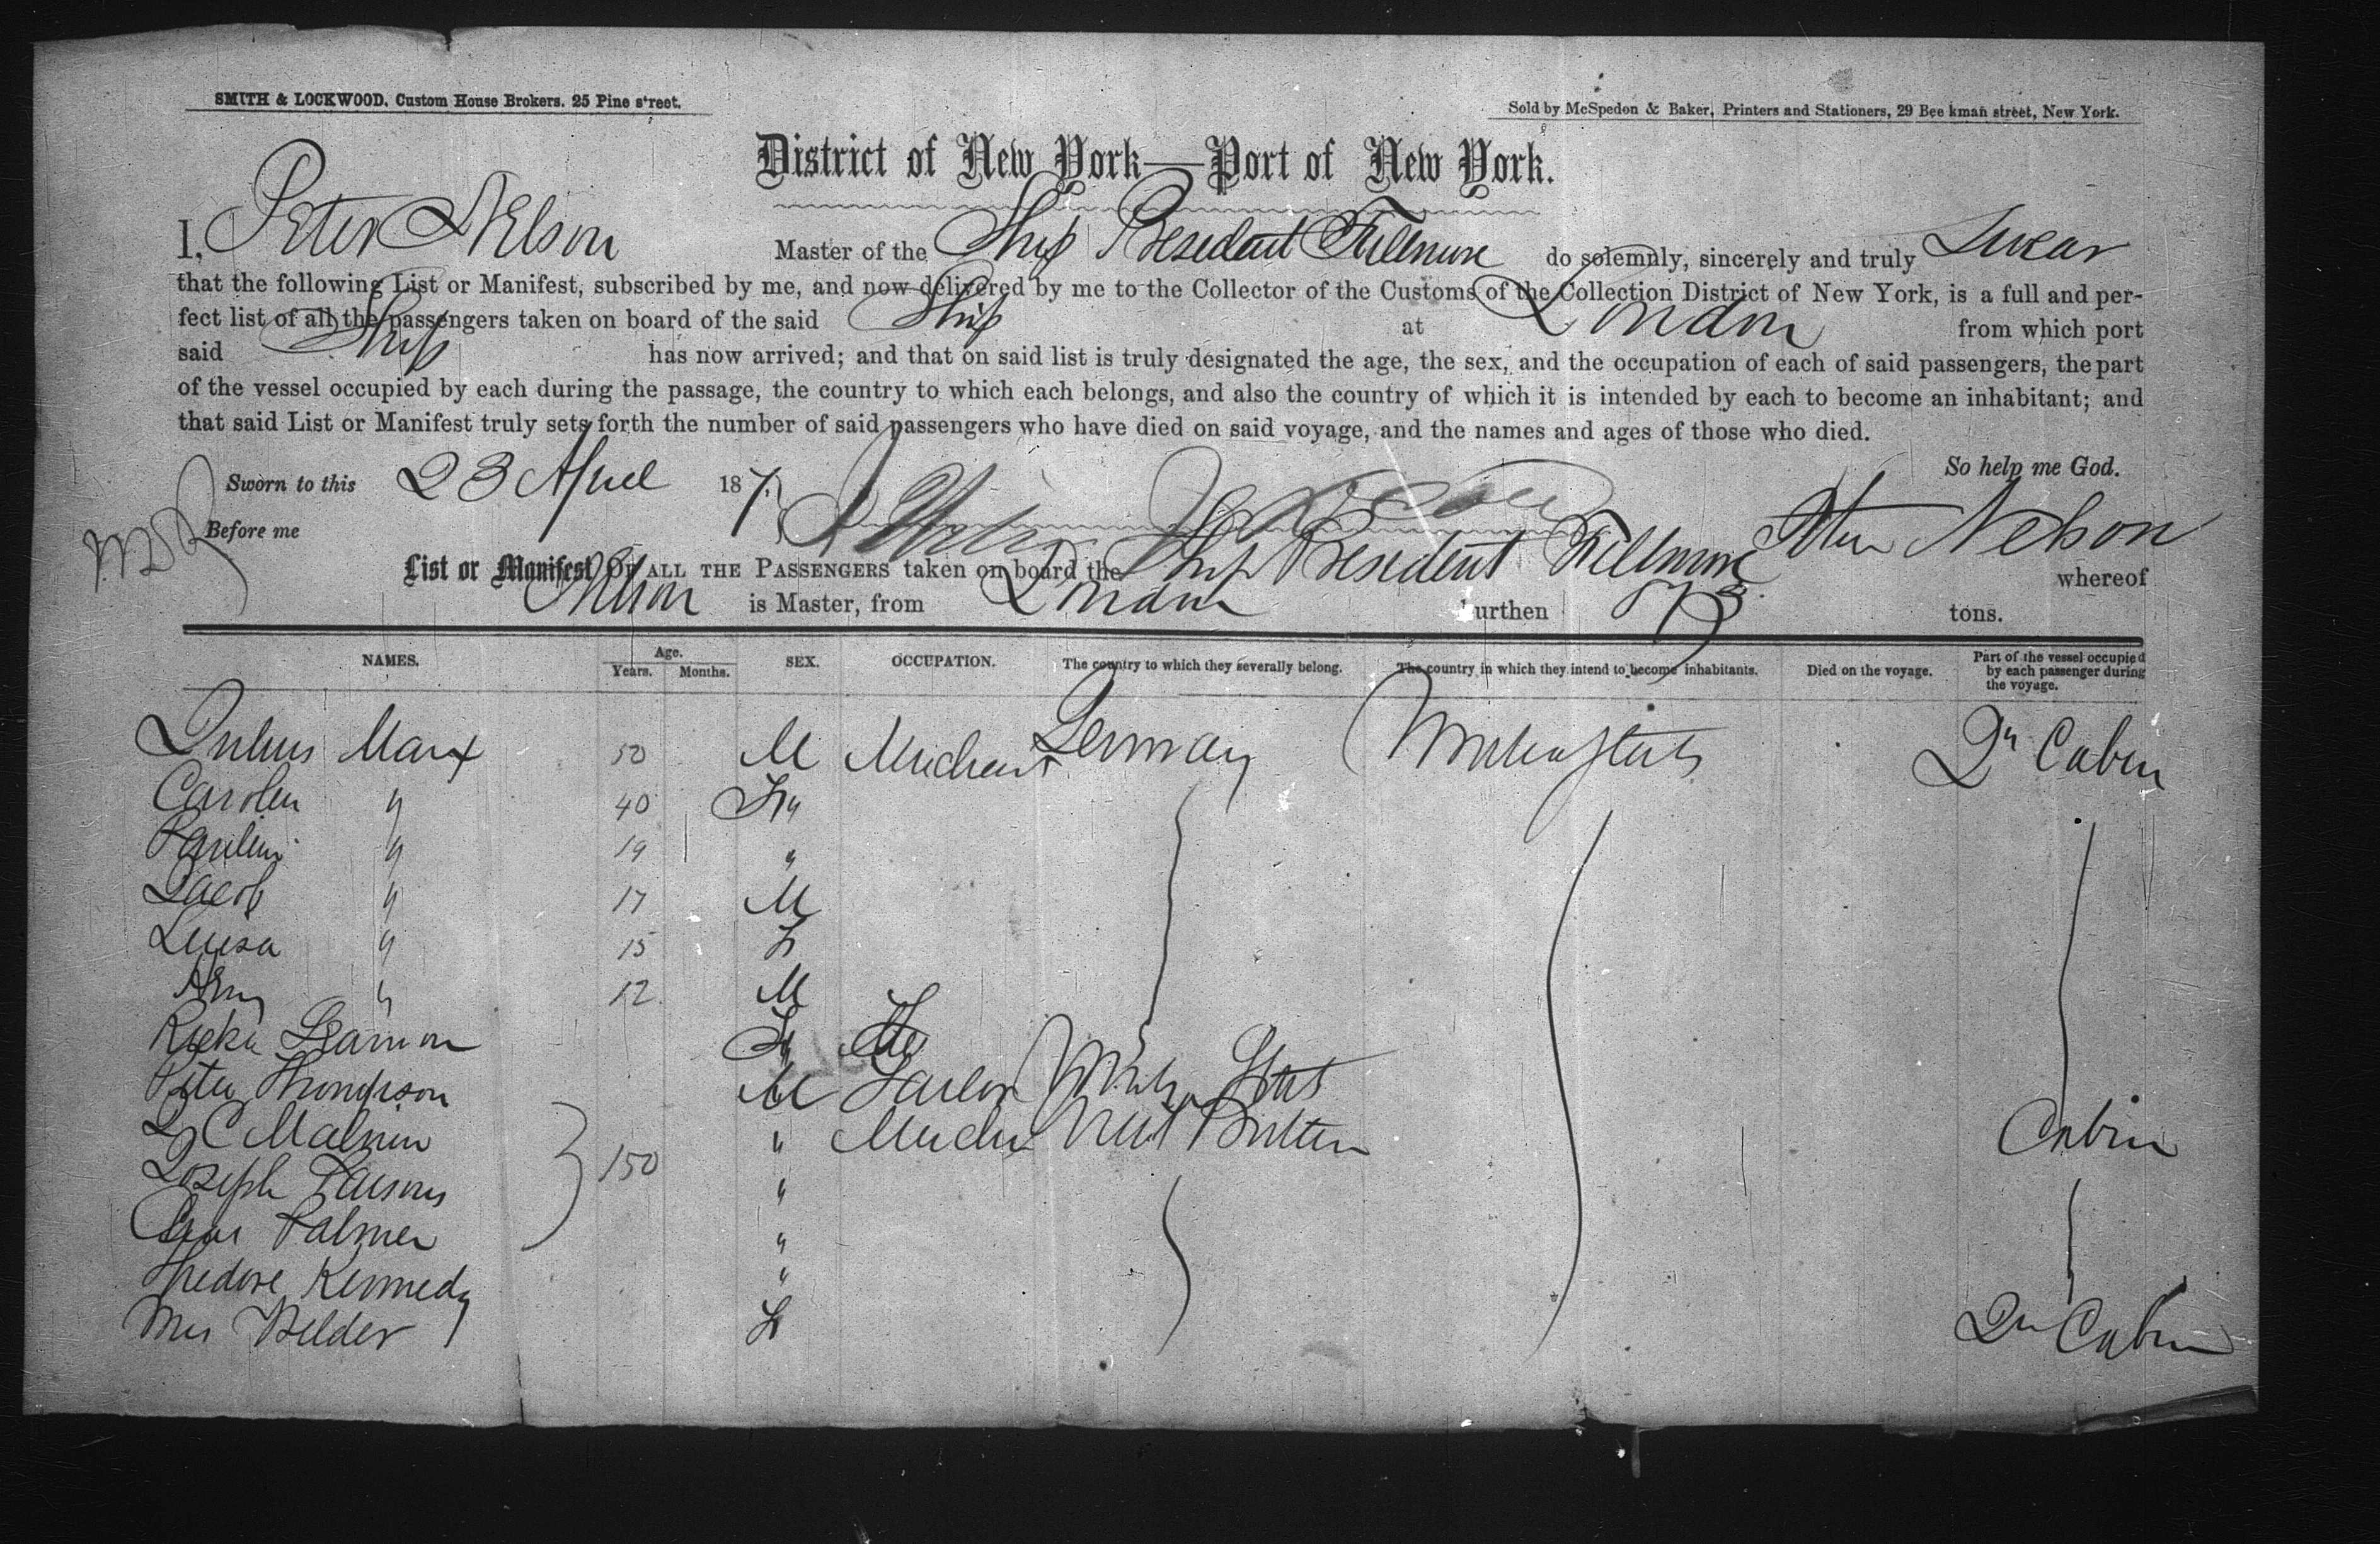 SMITH & LOCKWOOD, Custom House Brokers, 25 Pine street.
Sold by McSpedon & Baker, Printers and Stationers, 29 Beekman street, New York.
District of New York—Port of New York.
I, Peter Nelson Master of the Ship President Fillmore do solemnly, sincerely and truly Swear
that the following List or Manifest, subscribed by me, and now delivered by me to the Collector of the Customs of the Collection District of New York, is a full and per-
fect list of all the passengers taken on board of the said Ship at London from which port
said Ship has now arrived; and that on said list is truly designated the age, the sex, and the occupation of each of said passengers, the part
of the vessel occupied by each during the passage, the country to which each belongs, and also the country of which it is intended by each to become an inhabitant; and
that said List or Manifest truly sets forth the number of said passengers who have died on said voyage, and the names and ages of those who died.
So help me God.
Sworn to this 23 April 187
Before me
Peter Nelson
List or Manifest OF ALL THE PASSENGERS taken on board the Ship President Fillmore whereof
Nelson is Master, from London burthen 873 tons.
NAMES. Age. Years. Months. SEX. OCCUPATION. The country to which they severally belong. The country in which they intend to become inhabitants. Died on the voyage. Part of the vessel occupied by each passenger during the voyage.
Julius Marx 50 M Germany Cabin
" 40 F "
" 19 "
Jacob " 17 M
Luisa " 15 F
" 12 M
F
Peter Thompson M
C "
Joseph Parsons 150 "
Palmer "
Kennedy "
F Cabin
Cabin